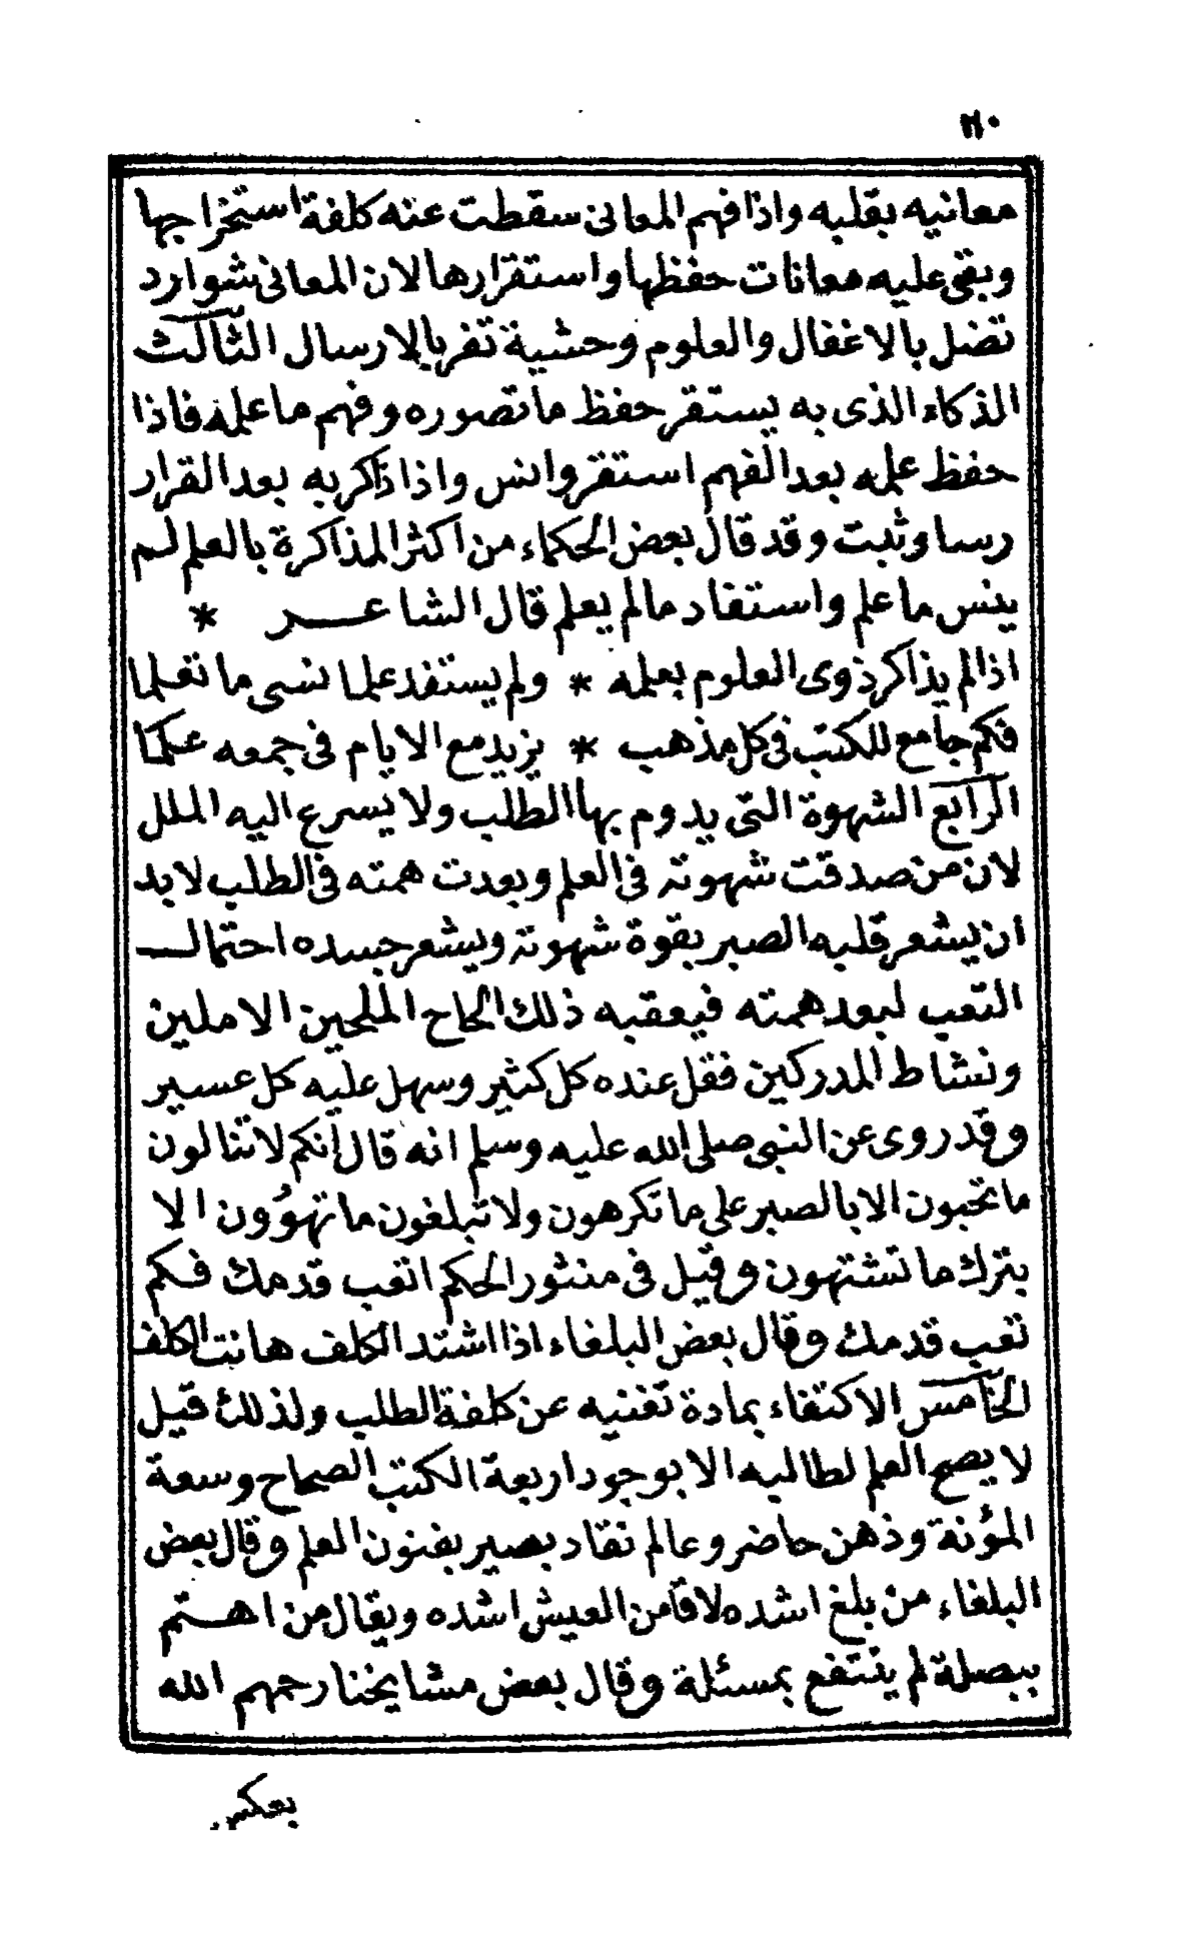 ٢٠
معانيه بقلبه واذا فهم المعانى سقطت عنه كلفة استخراجها
وبقى عليه معانات حفظها واستقرارها لان المعانى شوارد
تضل بالاغفال والعلوم وحشية تنفر بالارسال الثالث
الذكاء الذى به يستقر حفظ ما تصوره وفهم ما علمه فاذا
حفظ علمه بعد الفهم استقر وانس واذا ذاكر به بعد القرار
رسا وثبت وقد قال بعض الحكماء من اكثر المذاكرة بالعلم لم
ينس ما علم واستفاد مالم يعلم قال الشاعـــر *
اذا لم يذاكر ذوى العلوم بعلمه * ولم يستفد علما نسى ما تعلما
فكم جامع للكتب فى كل مذهب * يزيد مع الايام فى جمعه عمـا
الرابع الشهوة التى يدوم بها الطلب ولا يسرع اليه الملل
لان من صدقت شهوته فى العلم وبعدت همته فى الطلب لابد
ان يشعر قلبه الصبر بقوة شهوته ويشعر جسده احتمالـــ
التعب لبعد همته فيعقبه ذلك الحاح الملحين الاملين
ونشاط المدركين فقل عنده كل كثير وسهل عليه كل عسير
وقد روى عن النبى صلى الله عليه وسلم انه قال انكم لا تنالون
ما تحبون الا بالصبر على ما تكرهون ولا تبلغون ما تهوُون الا
بترك ما تشتهون وقيل فى منثور الحكم اتعب قدمك فكم
تعب قدمك وقال بعض البلغاء اذا اشتد الكلف هانت الكلف
الخامس الاكتفاء بمادة تغنيه عن كلفة الطلب ولذلك قيل
لا يصح العلم لطالبيه الا بوجود اربعة الكتب الصحاح وسعة
المؤنة وذهن حاضر وعالم نقاد بصير بفنون العلم وقال بعض
البلغاء من بلغ اشده لاقا من العيش اشده ويقال من اهتم
ببصلة لم ينتفع بمسئلة وقال بعض مشايخنا رحمهم الله